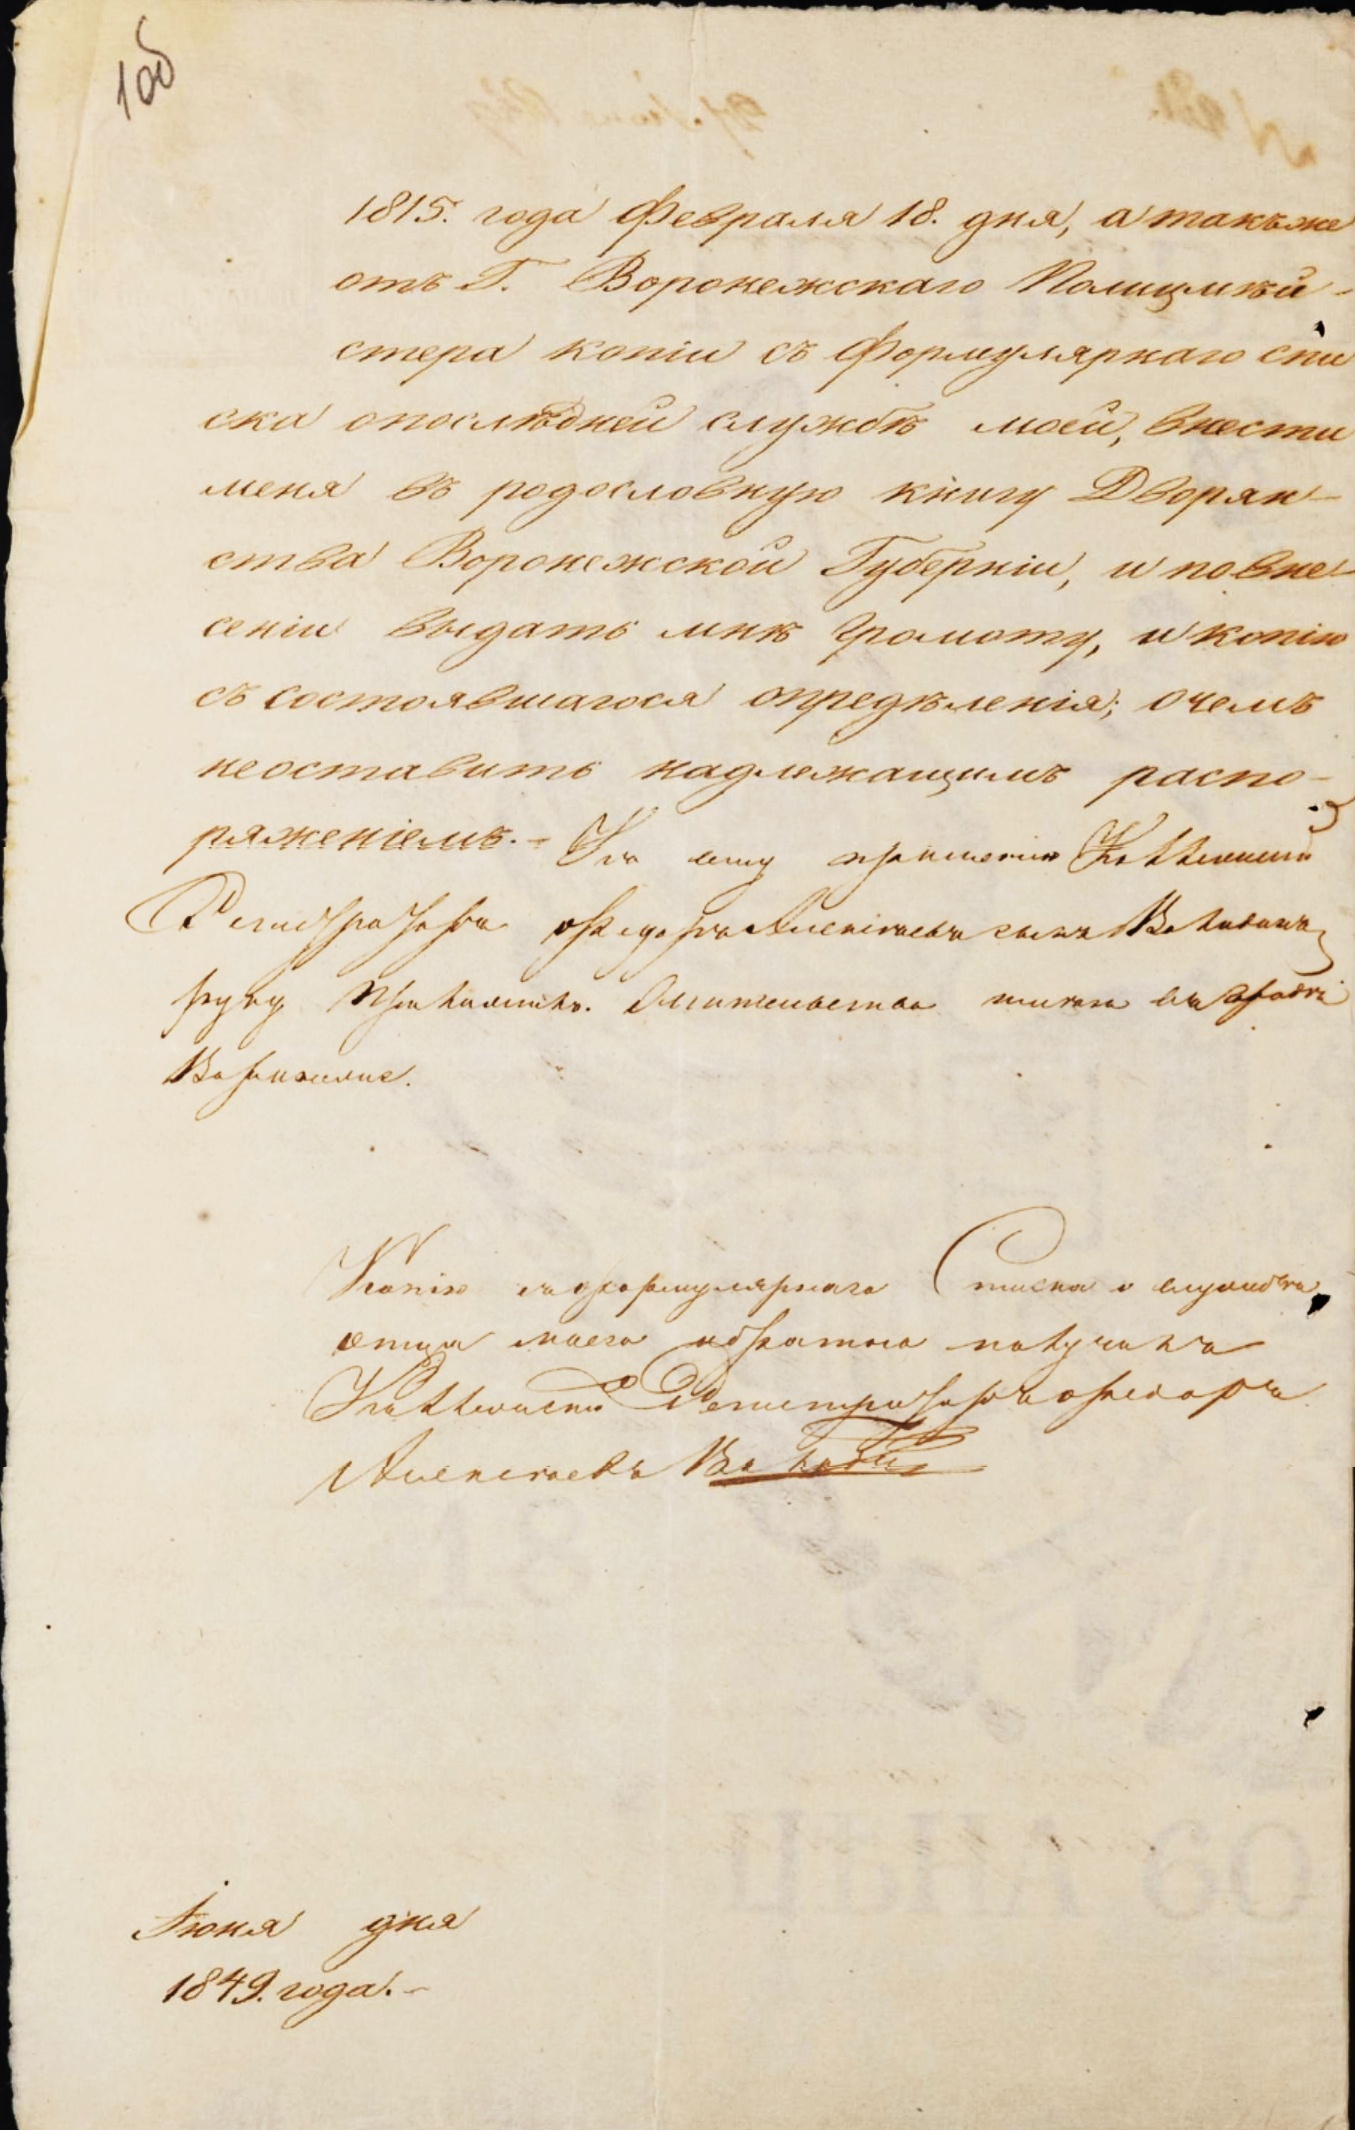 10об
1815. года Февраля 18. дня, а такъже
отъ Г. Воронежскаго Полицмѣй-
стера копіи съ Формулярнаго спи
ска опослѣдней службѣ моей, внести
меня въ родословную книгу Дворян-
ства Воронежской Губерніи, и повне-
сеніи выдать мнѣ грамоту, и копію
съ состоявшагося опредѣленія; очемъ
неоставить надлежащимъ распо-
ряженіемъ.- Къ сему прошенію Коллежскій
Регистраторъ Федоръ Алексѣевъ сынъ
руку приложилъ. Жительство имѣю въ городѣ
Воронеже.
Копію съ формулярнаго Списка о службѣ
отца моего обратно получилъ
Коллежскій Регистраторъ Федоръ
Алексѣевъ
Іюня дня
1849. года.-